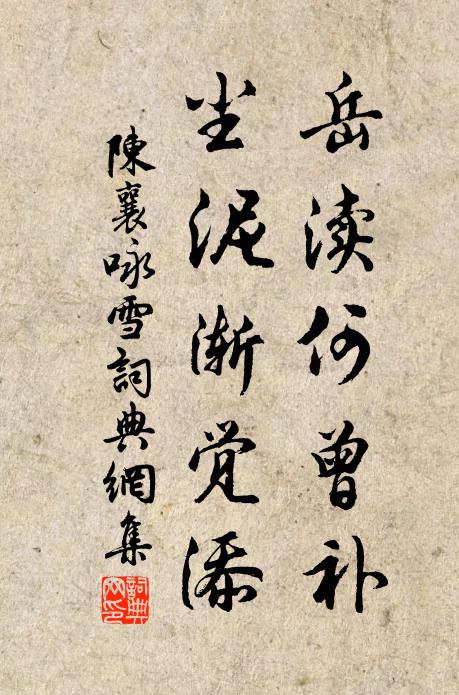 岳渎何曾补
尘泥渐觉添
陳襄咏雪詞典網集
詞典
网印